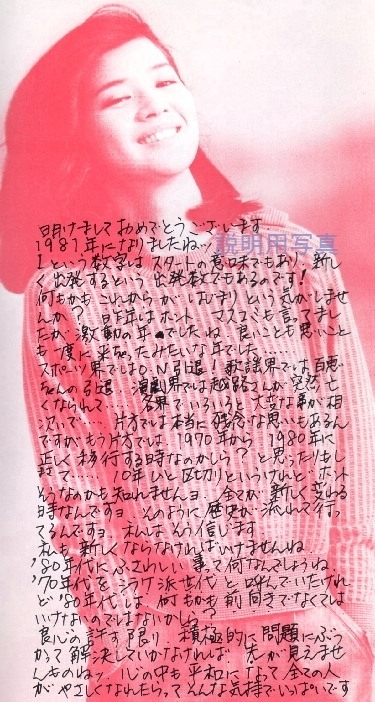 明けましておめでとうございます.
説明用写真
1981年になりましたねッ
1という数字は スタートの意味でもあり、新し
く出発するという 出発数でもあるのです!
何もかも これからが はじまり という気がしませ
んか? 昨年はホント マスコミも言ってまし
たが 激動の年でしたね 良いことも悪いこと
も一度に来ちゃったみたいな年でした.
スポーツ界ではO.N引退! 歌謡界では百恵
ちゃんの引退. 演劇界では越路さんが突然亡
くなられて… 各界でいろいろと大変な事が相
次いで…. 片方では本当に残念な思いもあるん
ですが もう片方では 1970年から 1980年に
正しく移行する時なのかしら? と思ったりもし
て… 10年ひと区切りというけれど ホント
そうなのかも知れませんョ. 全てが 新しく変わる
時なんですョ. そのように 歴史が 流れて行っ
てるんですョ. 私はそう信じます
私も新しくならなければいけませんね
'80年代にふさわしい事って何なんでしょうね.
'70年代をしらけ派世代 と呼んでいたけれ
ど '80年代は 何もかも 前向きでなくては
いけないのではないかしら?
良心の許す限り 積極的に 問題にぶつ
かって 解決していかなければ. 先が見えませ
んものねッ. 心の中も平和になって 全ての人
がやさしくなれたらってそんな気持でいっぱいです